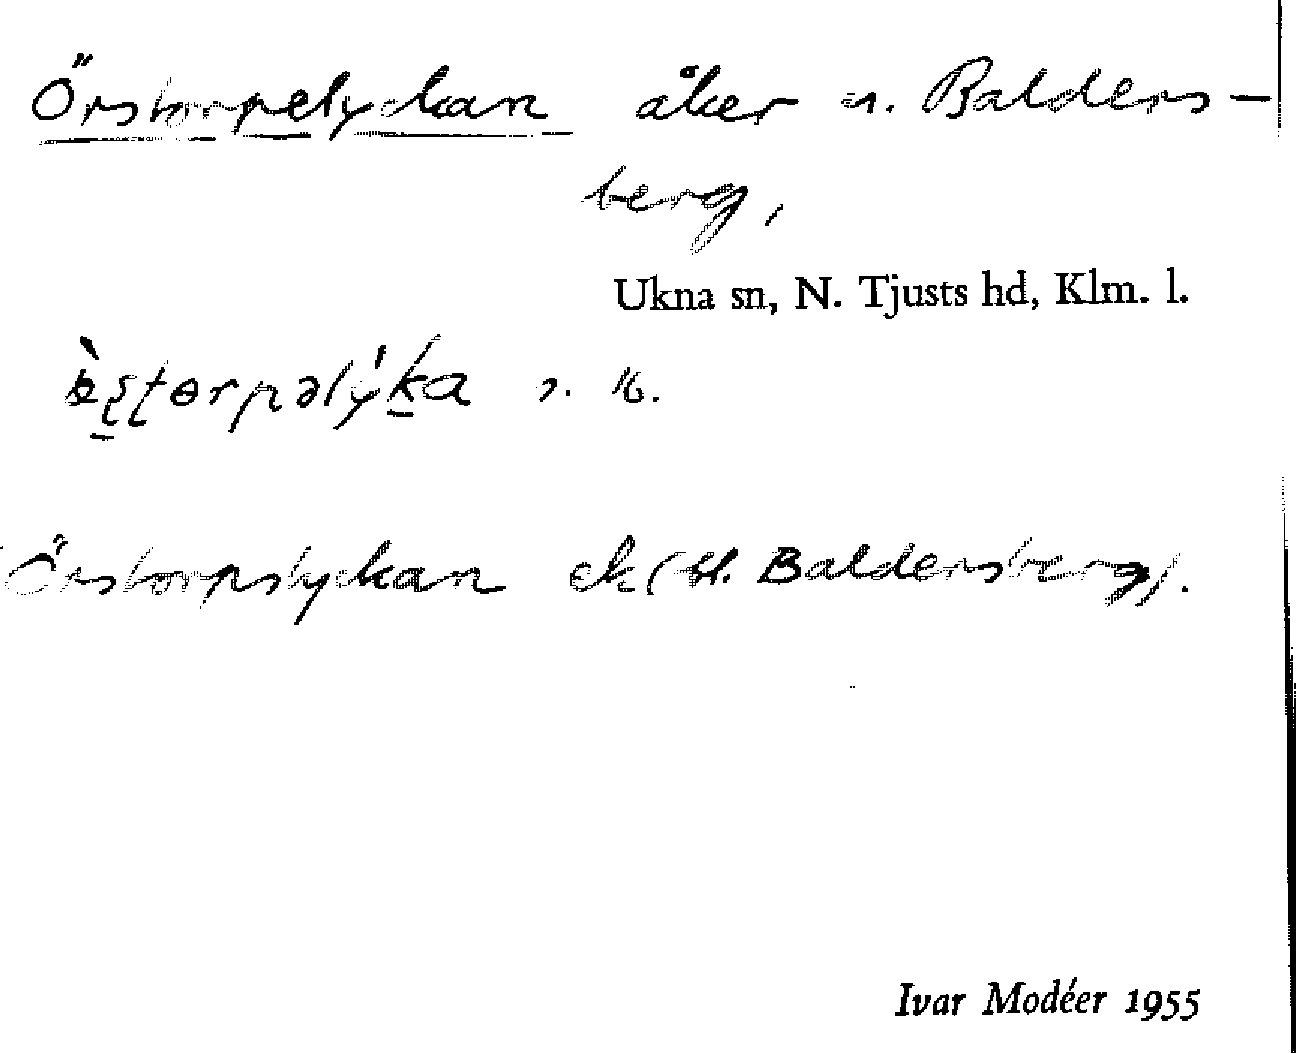 Örstorpelyckan åker n. Balders-
berg,
Ukna sn, N. Tjusts hd, Klm. l.
Örstorpslyckan ek (bl. Baldersberg).
Ivar Modéer 1955